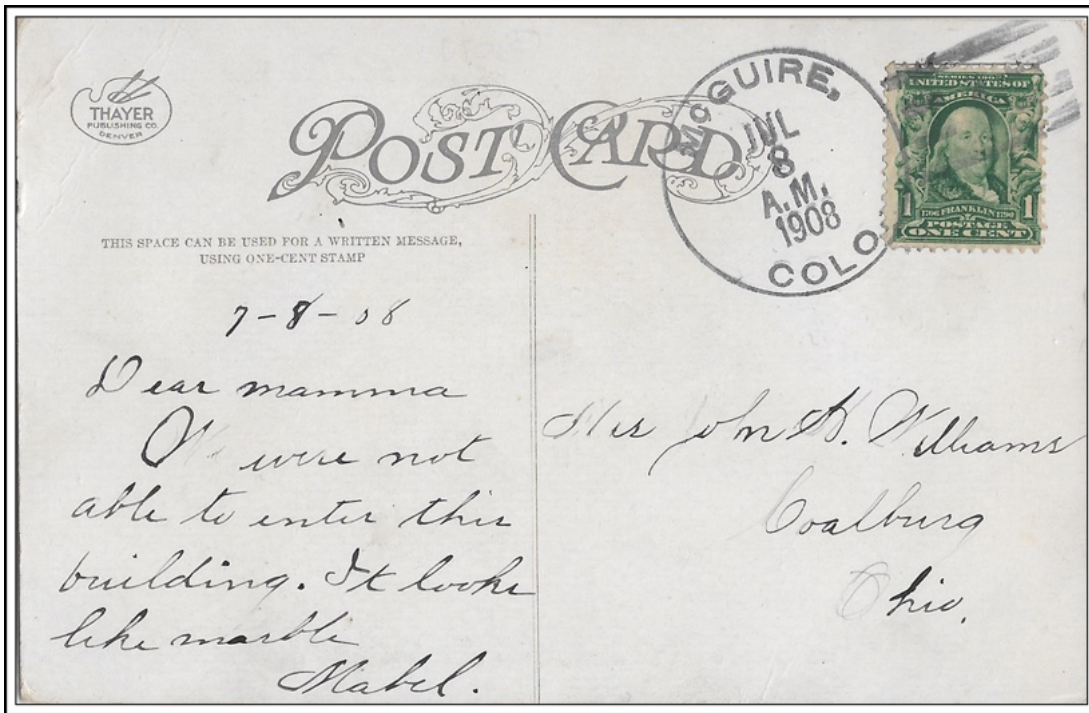 THAYER
PUBLISHING CO.
DENVER
POST CARD
McGUIRE,
JUL
8
A.M.
1908
COLO.
SERIES 1902
UNITED STATES OF
AMERICA
1 1706 FRANKLIN 1790 1
POSTAGE
ONE CENT
THIS SPACE CAN BE USED FOR A WRITTEN MESSAGE,
USING ONE-CENT STAMP
7-8-08
Dear mamma
We were not
able to enter this
building. It looks
like marble
Mabel.
Mrs John H. Williams
Coalburg
Ohio.